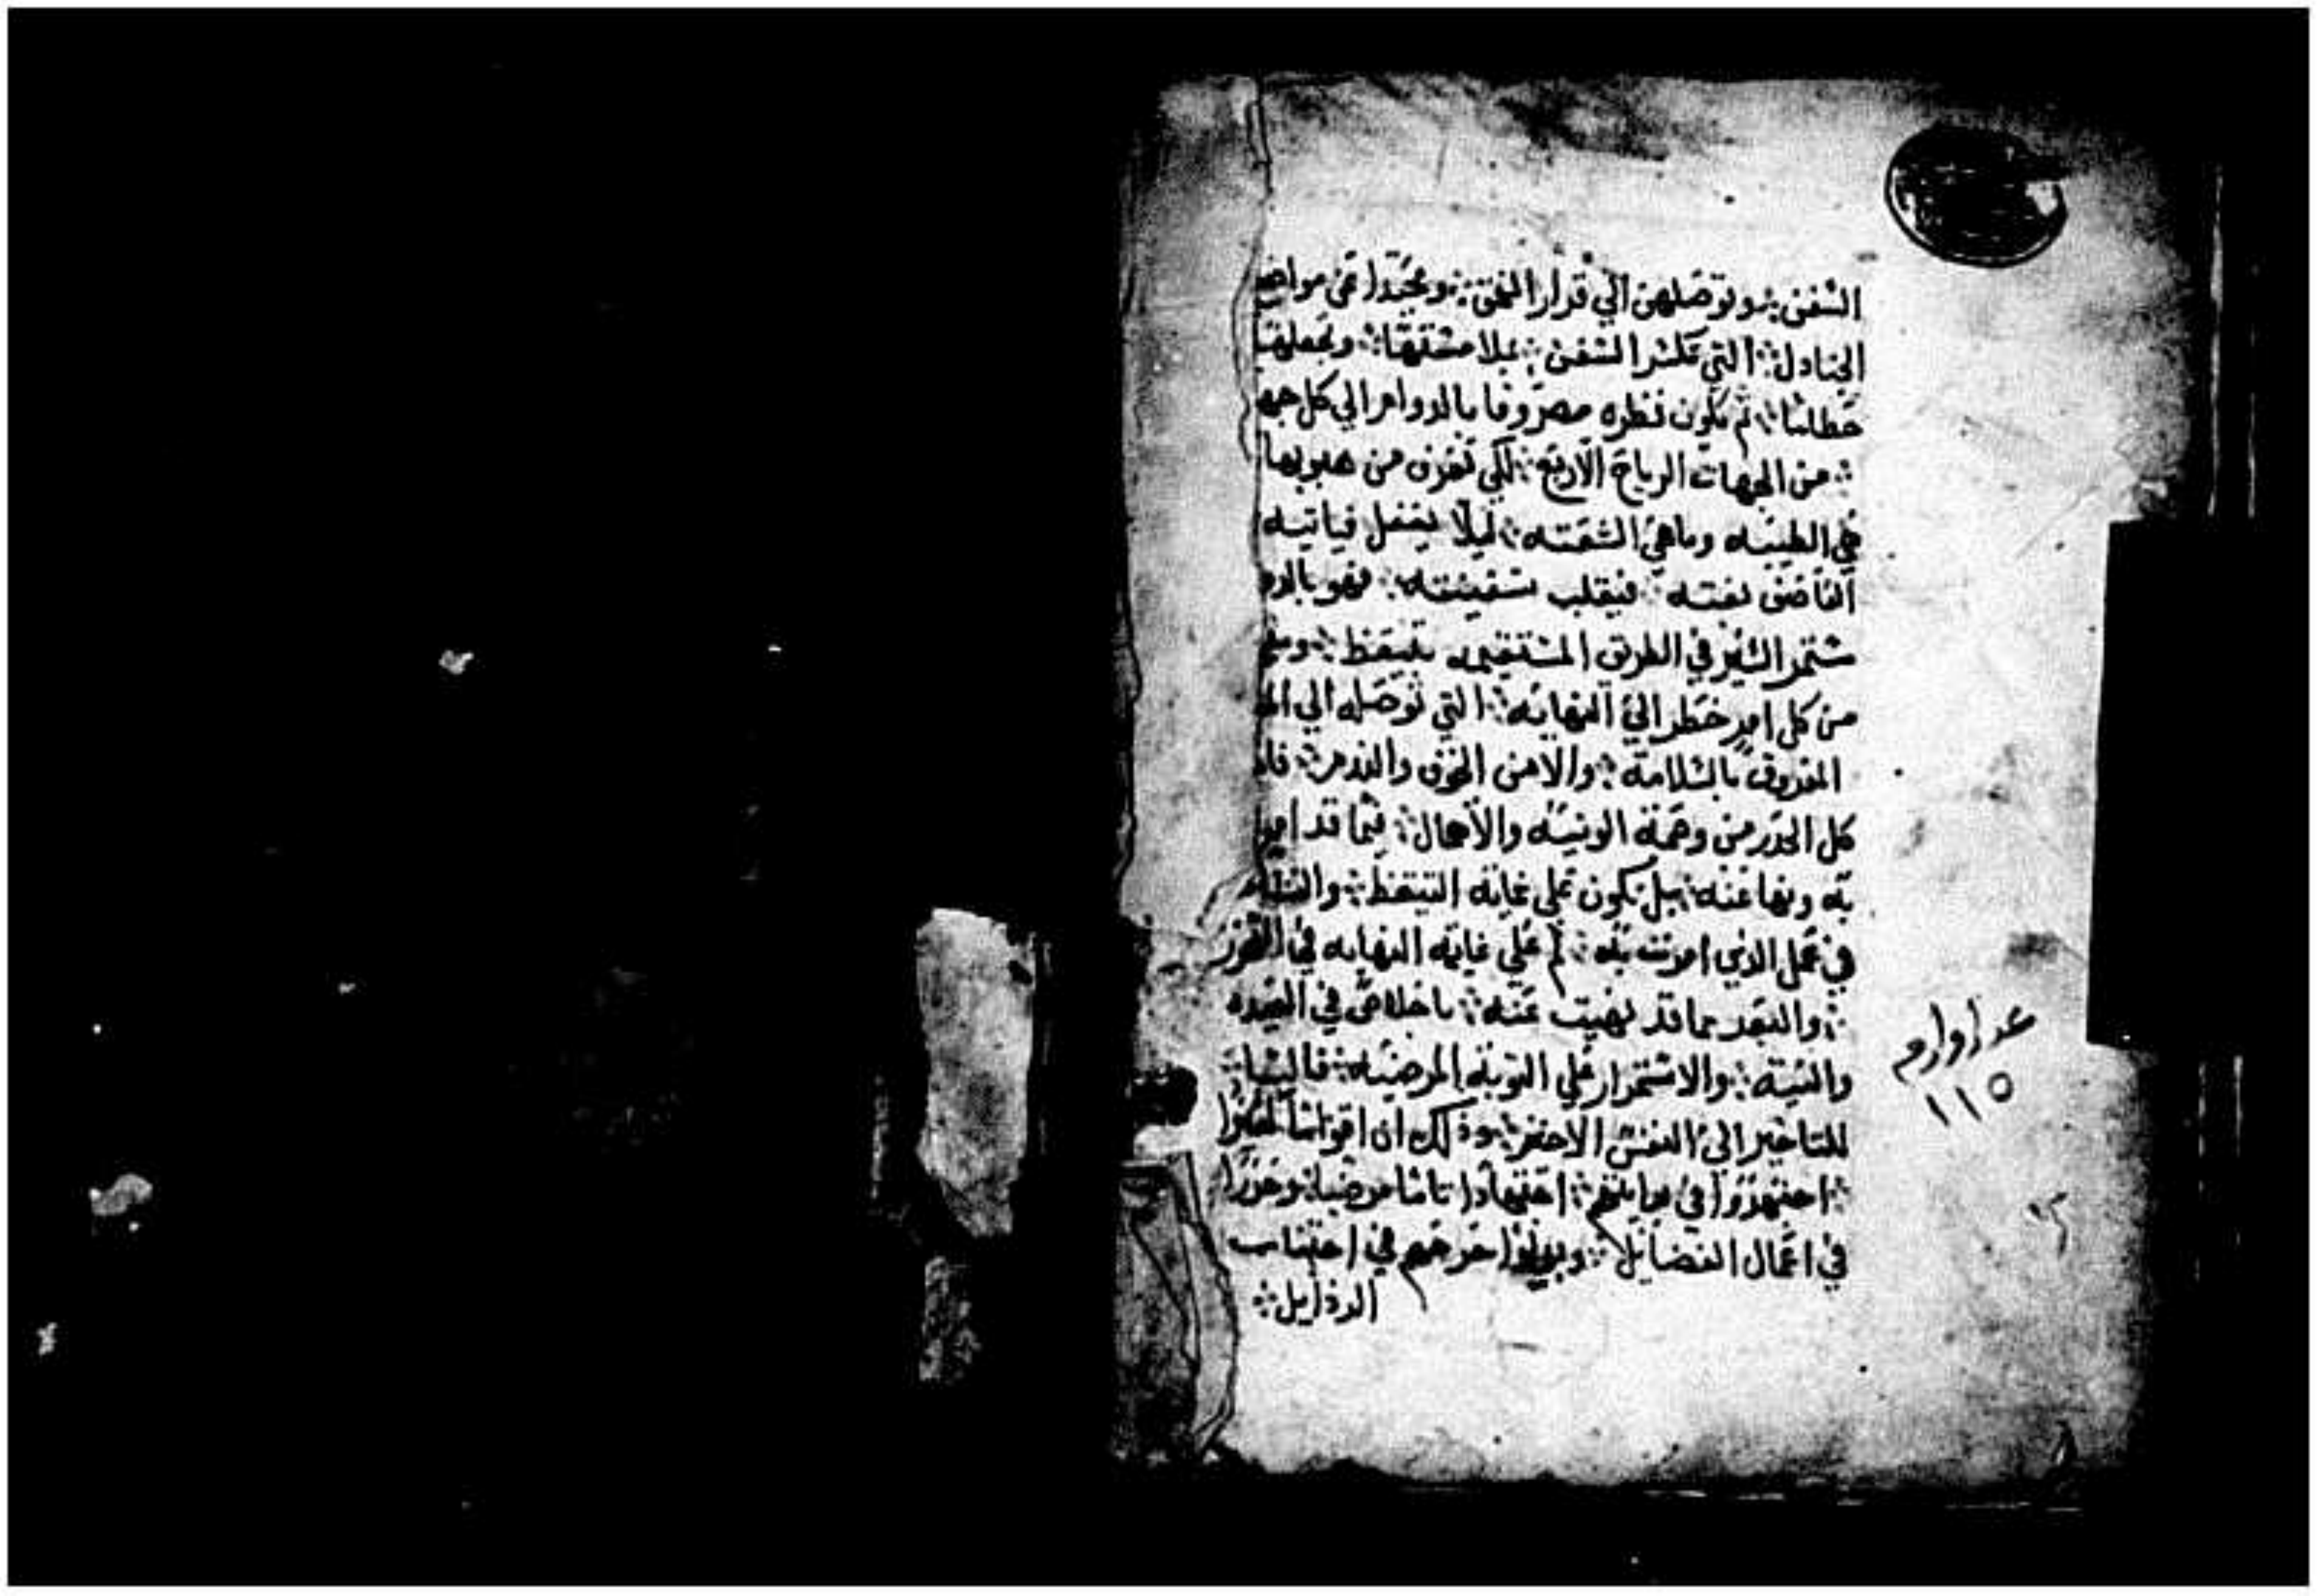 السفن ويوصلهن الي قرار العمق ويحيدا عن مواضع
الجنادل التي تكسر السفن بملامستها وتجعلها
حطاما ثم يكون نظره مصروفا بالدوام الي كل جهه
من الجهات الرياح الاربع لكي تعرف من هبوبها
هي الطيبه وما هي الشتمته ليلا يغفل فياتيه
العاصف بغته فيقلب سفينته فهو بالدو
ستمر السير في الطريق المستقيمه بتيقظ
من كل امر خطر الي النهايه التي توصله الي
المعروف بالسلامة والامن الخوف والندم
كل الحدر من وهمة الونيه والاهمال فيما قد امر
به ونها عنه بل تكون علي غاية التيقظ
في عمل الذي امرت به ثم علي غاية النهايه في التحرز
والبعد مما قد نهيت عنه باخلاص في العقيده
والنيته والاستمرار علي التوبه المرضيه
للتاخير الي النفس الاخير وذلك ان اقواما
اجتهدوا في اجتهادا تاما مرضيا
في اعمال الفضايل حرصهم في اجتناب
الرذايل
عد اوارم
١١٥